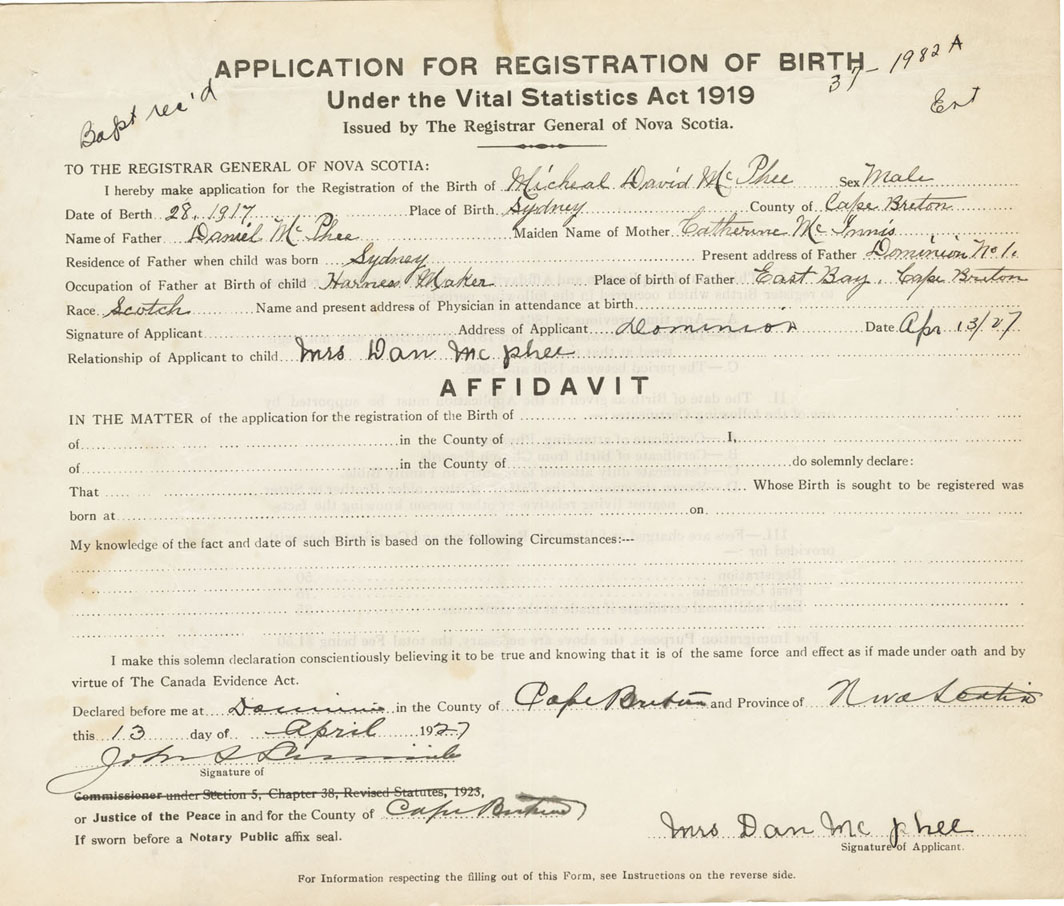 APPLICATION FOR REGISTRATION OF BIRTH
37-1982 A
Bapt rec'd
Under the Vital Statistics Act 1919
Ent
Issued by The Registrar General of Nova Scotia.
TO THE REGISTRAR GENERAL OF NOVA SCOTIA:
I hereby make application for the Registration of the Birth of Micheal David McPhee Sex Male
Date of Berth 28, 1917 Place of Birth Sydney County of Cape Breton
Name of Father Daniel McPhee Maiden Name of Mother Catherine McInnis
Residence of Father when child was born Sydney Present address of Father Dominion No 1.
Occupation of Father at Birth of child Harness Maker Place of birth of Father East Bay, Cape Breton
Race Scotch Name and present address of Physician in attendance at birth
Signature of Applicant Address of Applicant Dominion Date Apr 13/27
Relationship of Applicant to child Mrs Dan Mc phee
AFFIDAVIT
IN THE MATTER of the application for the registration of the Birth of
of in the County of I,
of in the County of do solemnly declare:
That Whose Birth is sought to be registered was
born at on
My knowledge of the fact and date of such Birth is based on the following Circumstances:---
I make this solemn declaration conscientiously believing it to be true and knowing that it is of the same force and effect as if made under oath and by
virtue of The Canada Evidence Act.
Declared before me at Dominion in the County of Cape Breton and Province of Nova Scotia
this 13 day of April 1927
John S
Signature of
Commissioner under Section 5, Chapter 38, Revised Statutes, 1923,
or Justice of the Peace in and for the County of Cape Breton
If sworn before a Notary Public affix seal.
Mrs Dan Mc phee
Signature of Applicant.
For Information respecting the filling out of this Form, see Instructions on the reverse side.